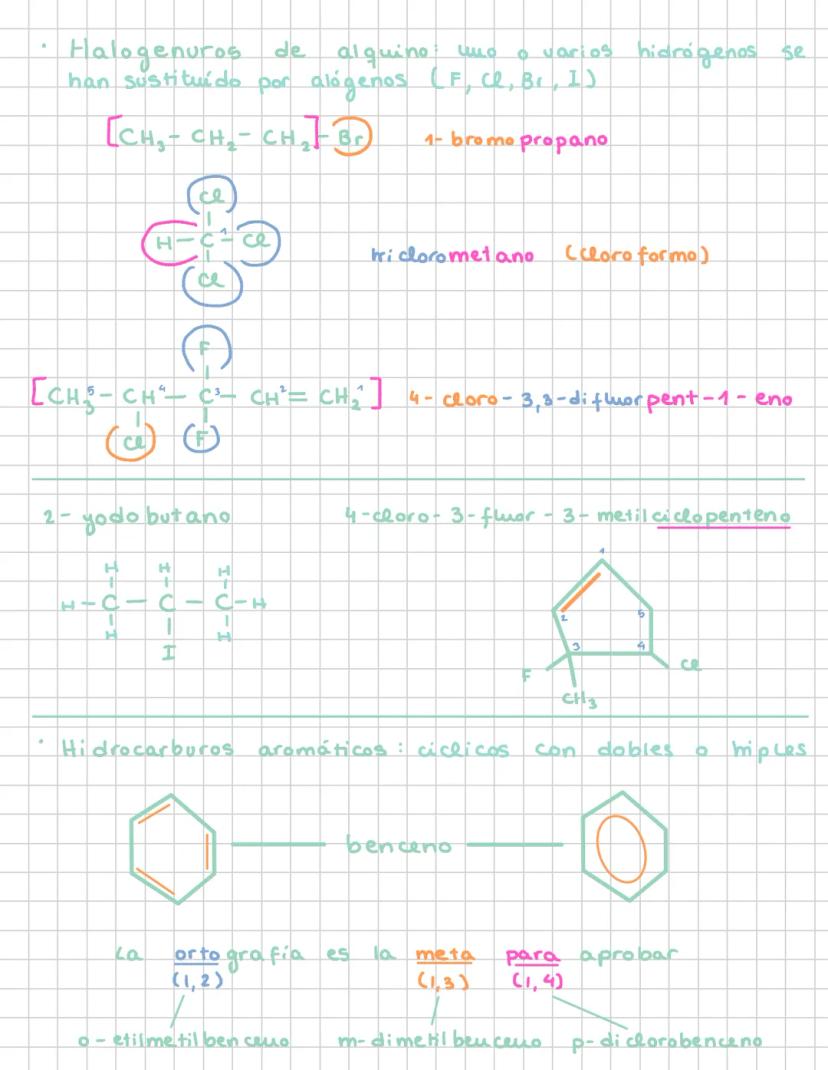 · Halogenuros de alquino: uno o varios hidrógenos se
han sustituído por alógenos (F, Cl, Br, I)
[CH₃ – CH₂ – CH₂] – Br 1- bromo propano
Cl
H – C¹ – Cl
Cl
triclorometano (cloroformo)
F
[CH₃⁵ – CH⁴ – C³ – CH² = CH₂¹] 4 - cloro - 3,3 - difluor pent - 1 - eno
Cl F
2 - yodobutano 4 - cloro - 3 - fluor - 3 - metilciclopenteno
H H H
H – C – C – C – H
H I H
1
2 5
3 4
F Cl
CH₃
· Hidrocarburos aromáticos: cíclicos con dobles o triples
benceno
La ortografía es la meta para aprobar
(1,2) (1,3) (1,4)
o - etilmetilbenceno m- dimetilbenceno p- diclorobenceno